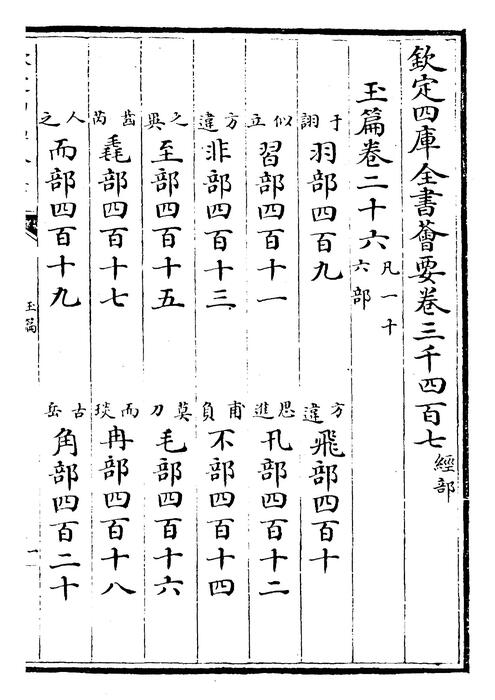 欽定四庫全書薈要卷三千四百七 經部
玉篇卷二十六 凡一十六部
于詡 羽部四百九 方違 飛部四百十
似立 習部四百十一 思進 卂部四百十二
方違 非部四百十三 甫負 不部四百十四
之異 至部四百十五 莫刀 毛部四百十六
昌芮 毳部四百十七 而琰 冉部四百十八
人之 而部四百十九 古岳 角部四百二十
玉篇
一